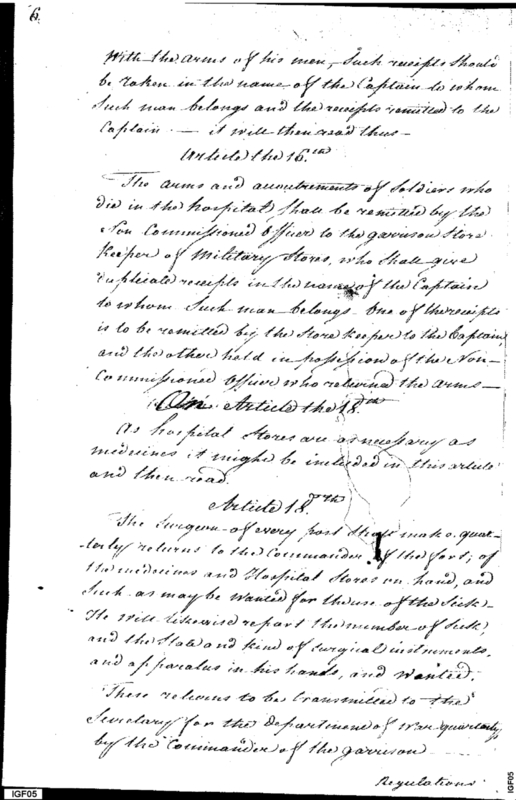 6
With the arms of his men, Such receipts Should
be taken in the name of the Captain to whom
Such man belongs and the receipts remitted to the
Captain. — it will then read thus —
Article the 16.th
The arms and accoutrements of Soldiers who
die in the hospital Shall be remitted by the
Non Commissioned Officer to the garrison Store
Keeper of Military Stores, who Shall give
duplicate receipts in the name of the Captain
to whom Such man belongs one of the receipts
is to be remitted by the Store Keeper to the Captain,
and the other held in possession of the Non-
Commissioned Officer who relieved the arms —
On Article the 18.th
As hospital Stores are as necessary as
medicines it might be included in this article
and then read.
Article 18.th
The Surgeon of every post Shall make quar-
terly returns to the Commander of the fort; of
the medicines and Hospital Stores on hand, and
Such as may be wanted for the use of the Sick —
He will likewise report the number of Sick,
and the State and kind of Surgical instruments,
and apparatus in his hands, and wanted.
These returns to be transmitted to the
Secretary for the department of War quarterly
by the Commander of the garrison —
Regulations
IGF05
IGF05